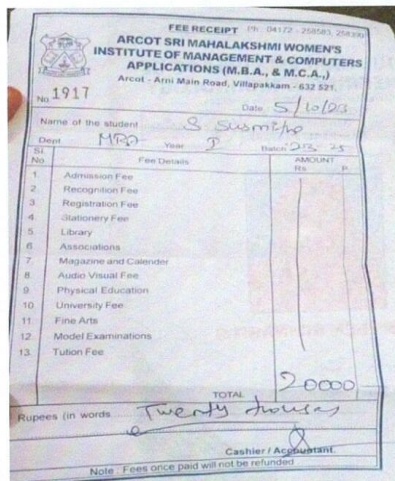 FEE RECEIPT Ph : 04172 - 258583, 258390
ARCOT SRI MAHALAKSHMI WOMEN'S
INSTITUTE OF MANAGEMENT & COMPUTERS
APPLICATIONS (M.B.A., & M.C.A.,)
Arcot - Arni Main Road, Villapakkam - 632 521.
No 1917
Date 5/10/23
Name of the student S Susmitha
Dept MBA Year I Batch 23 25
Sl. No Fee Details AMOUNT Rs P.
1. Admission Fee
2. Recognition Fee
3. Registration Fee
4. Stationery Fee
5. Library
6. Associations
7. Magazine and Calender
8. Audio Visual Fee
9. Physical Education
10. University Fee
11. Fine Arts
12. Model Examinations
13. Tution Fee
TOTAL 20000
Rupees (in words Twenty
Cashier / Accountant.
Note : Fees once paid will not be refunded